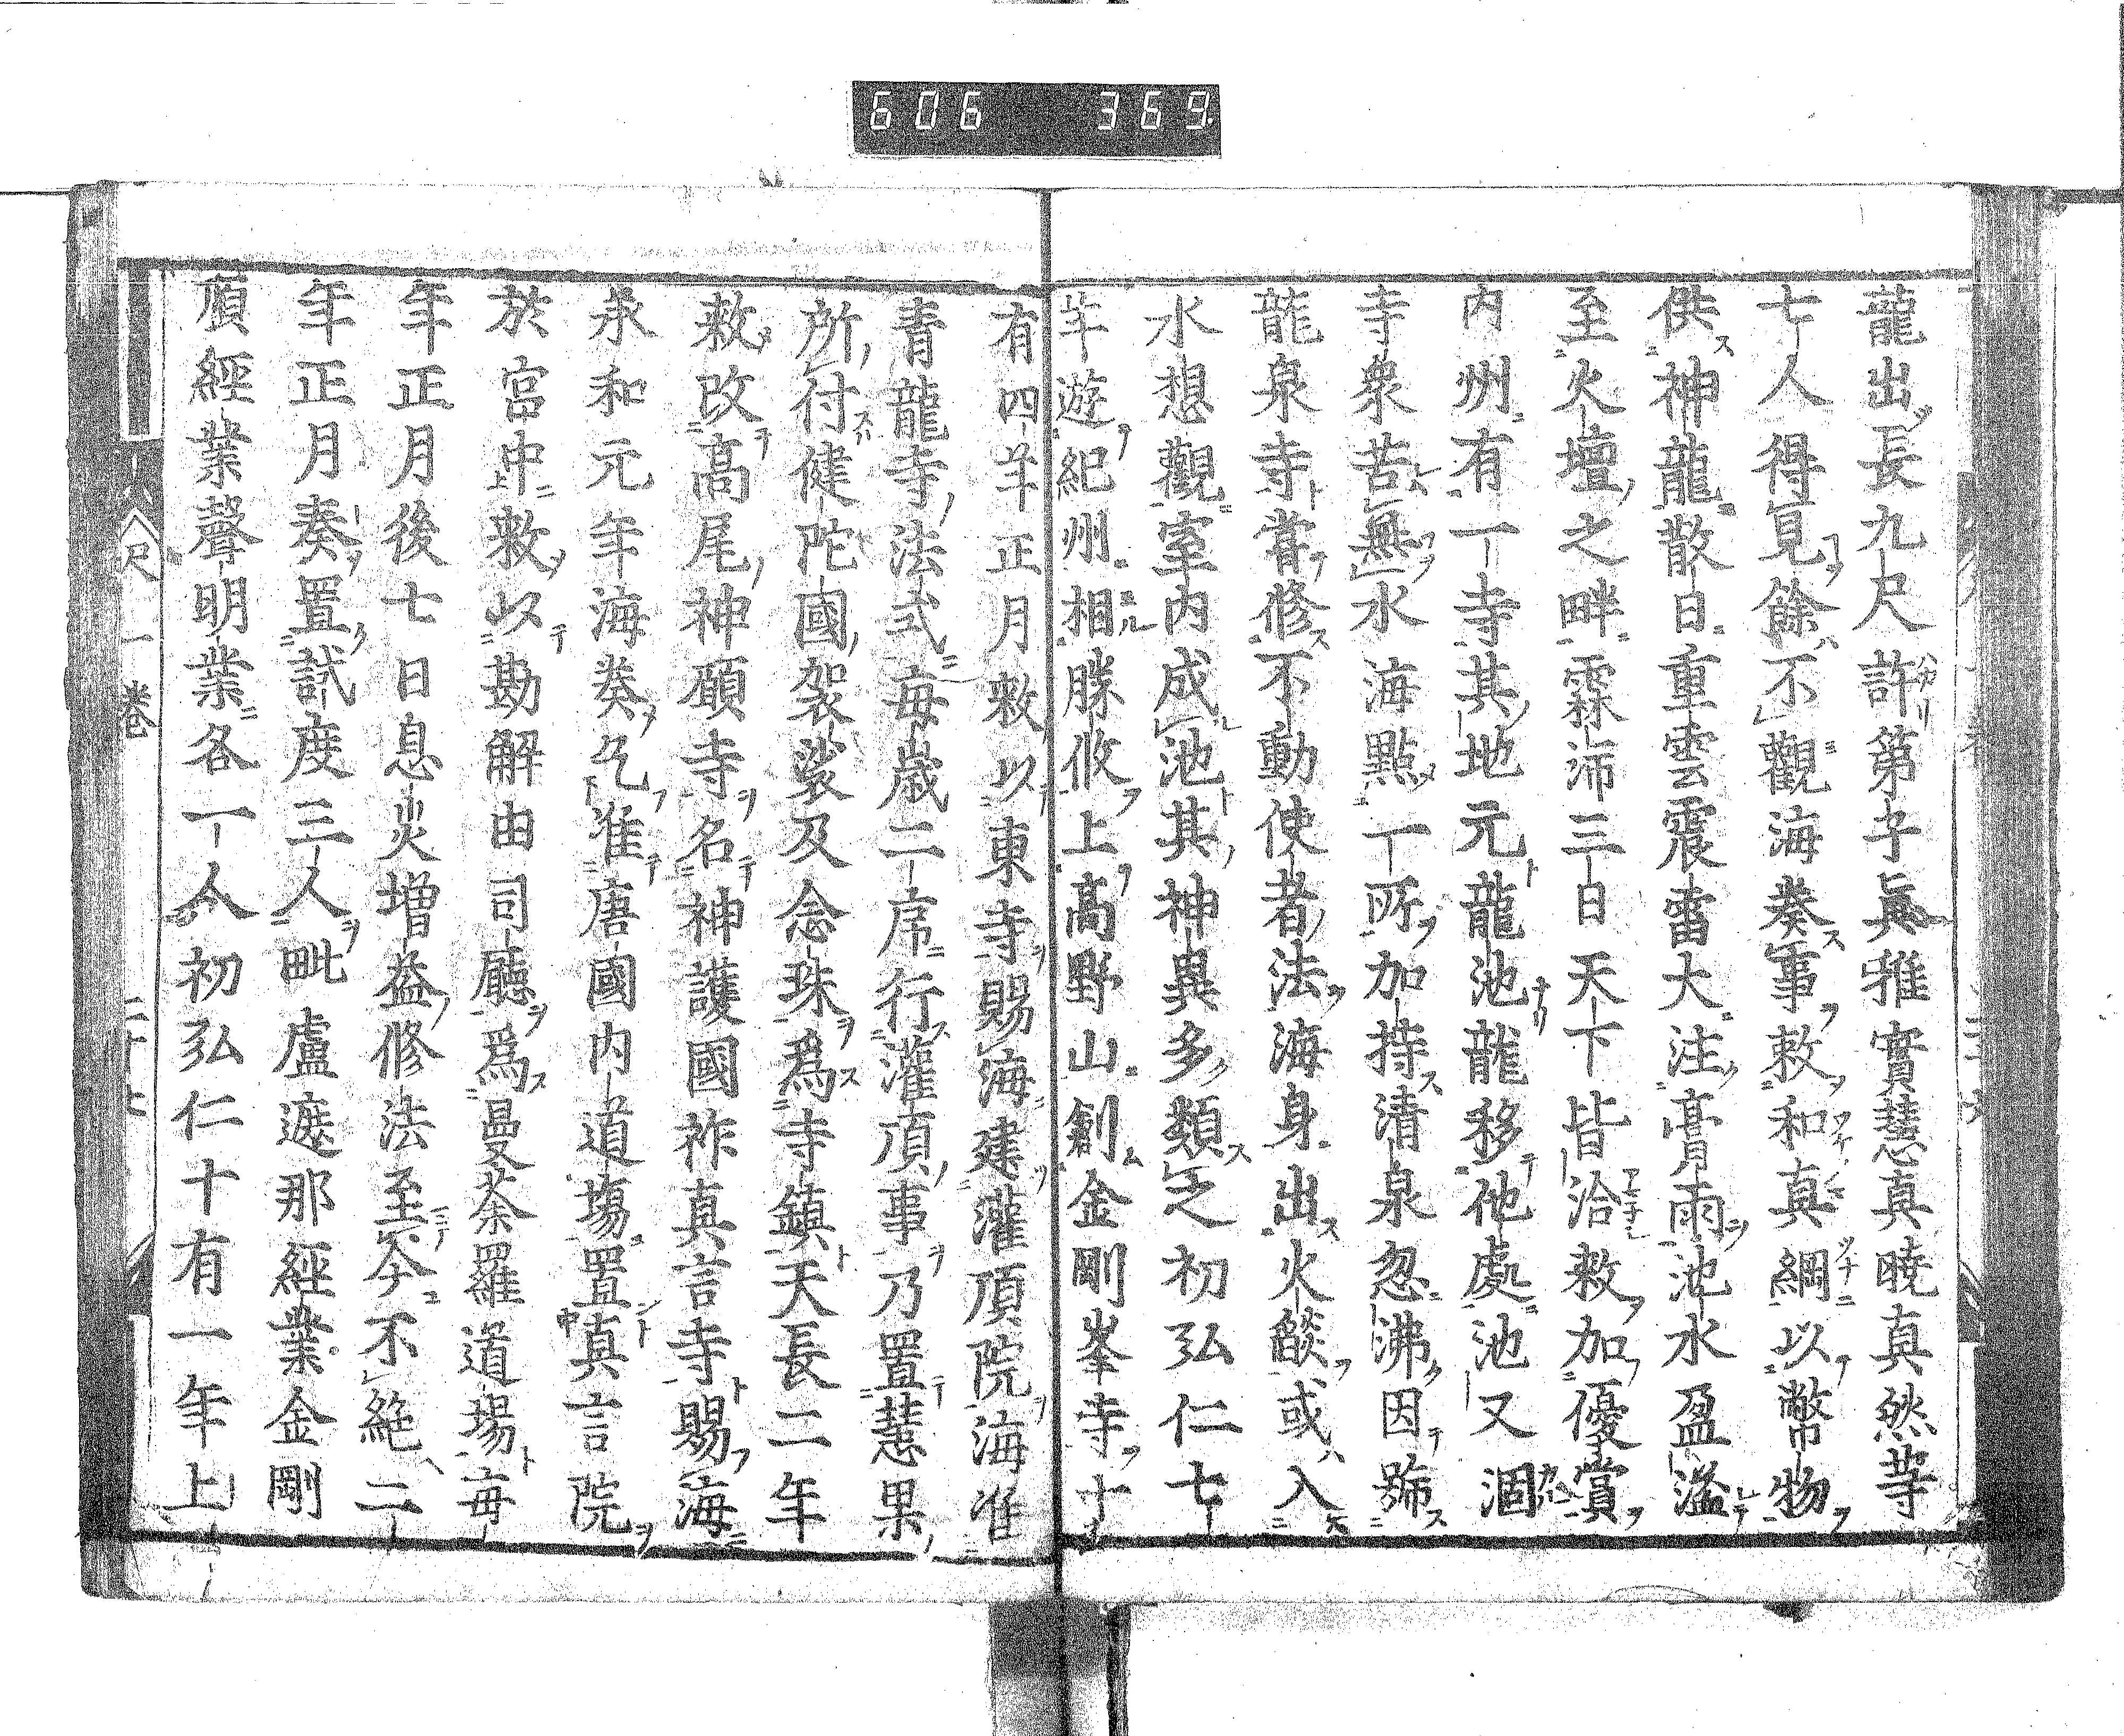 606 369.
龍出長九尺許第子真雅實慧真曉真然等
七人得見餘不觀海奏事敕和真綱以幣物
供神龍散日重雲震雷大注膏雨池水盈溢
至火壇之畔霖沛三日天下皆洽敕加優賞
内州有一寺其地元龍池龍移他處池又涸
寺衆苦無水海點一所加持清泉忽沸因號
龍泉寺嘗修不動使者法海身出火燄或入
水想觀室内成池其神異多類之初弘仁七
年遊紀州相勝攸上高野山創金剛峯寺十
有四年正月敕以東寺賜海建灌頂院海准
青龍寺法式每歲二席行灌頂事乃置慧果
所付健陀國袈裟及念珠爲寺鎮天長二年
敕改高尾神願寺名神護國祚真言寺賜海
承和元年海奏乞准唐國内道場置真言院
於宮中敕以勘解由司廳爲曼荼羅道場每
年正月後七日息災增益修法至今不絶二
年正月奏置試度三人毗盧遮那經業金剛
頂經業聲明業各一人初弘仁十有一年上
尺一卷 二十七